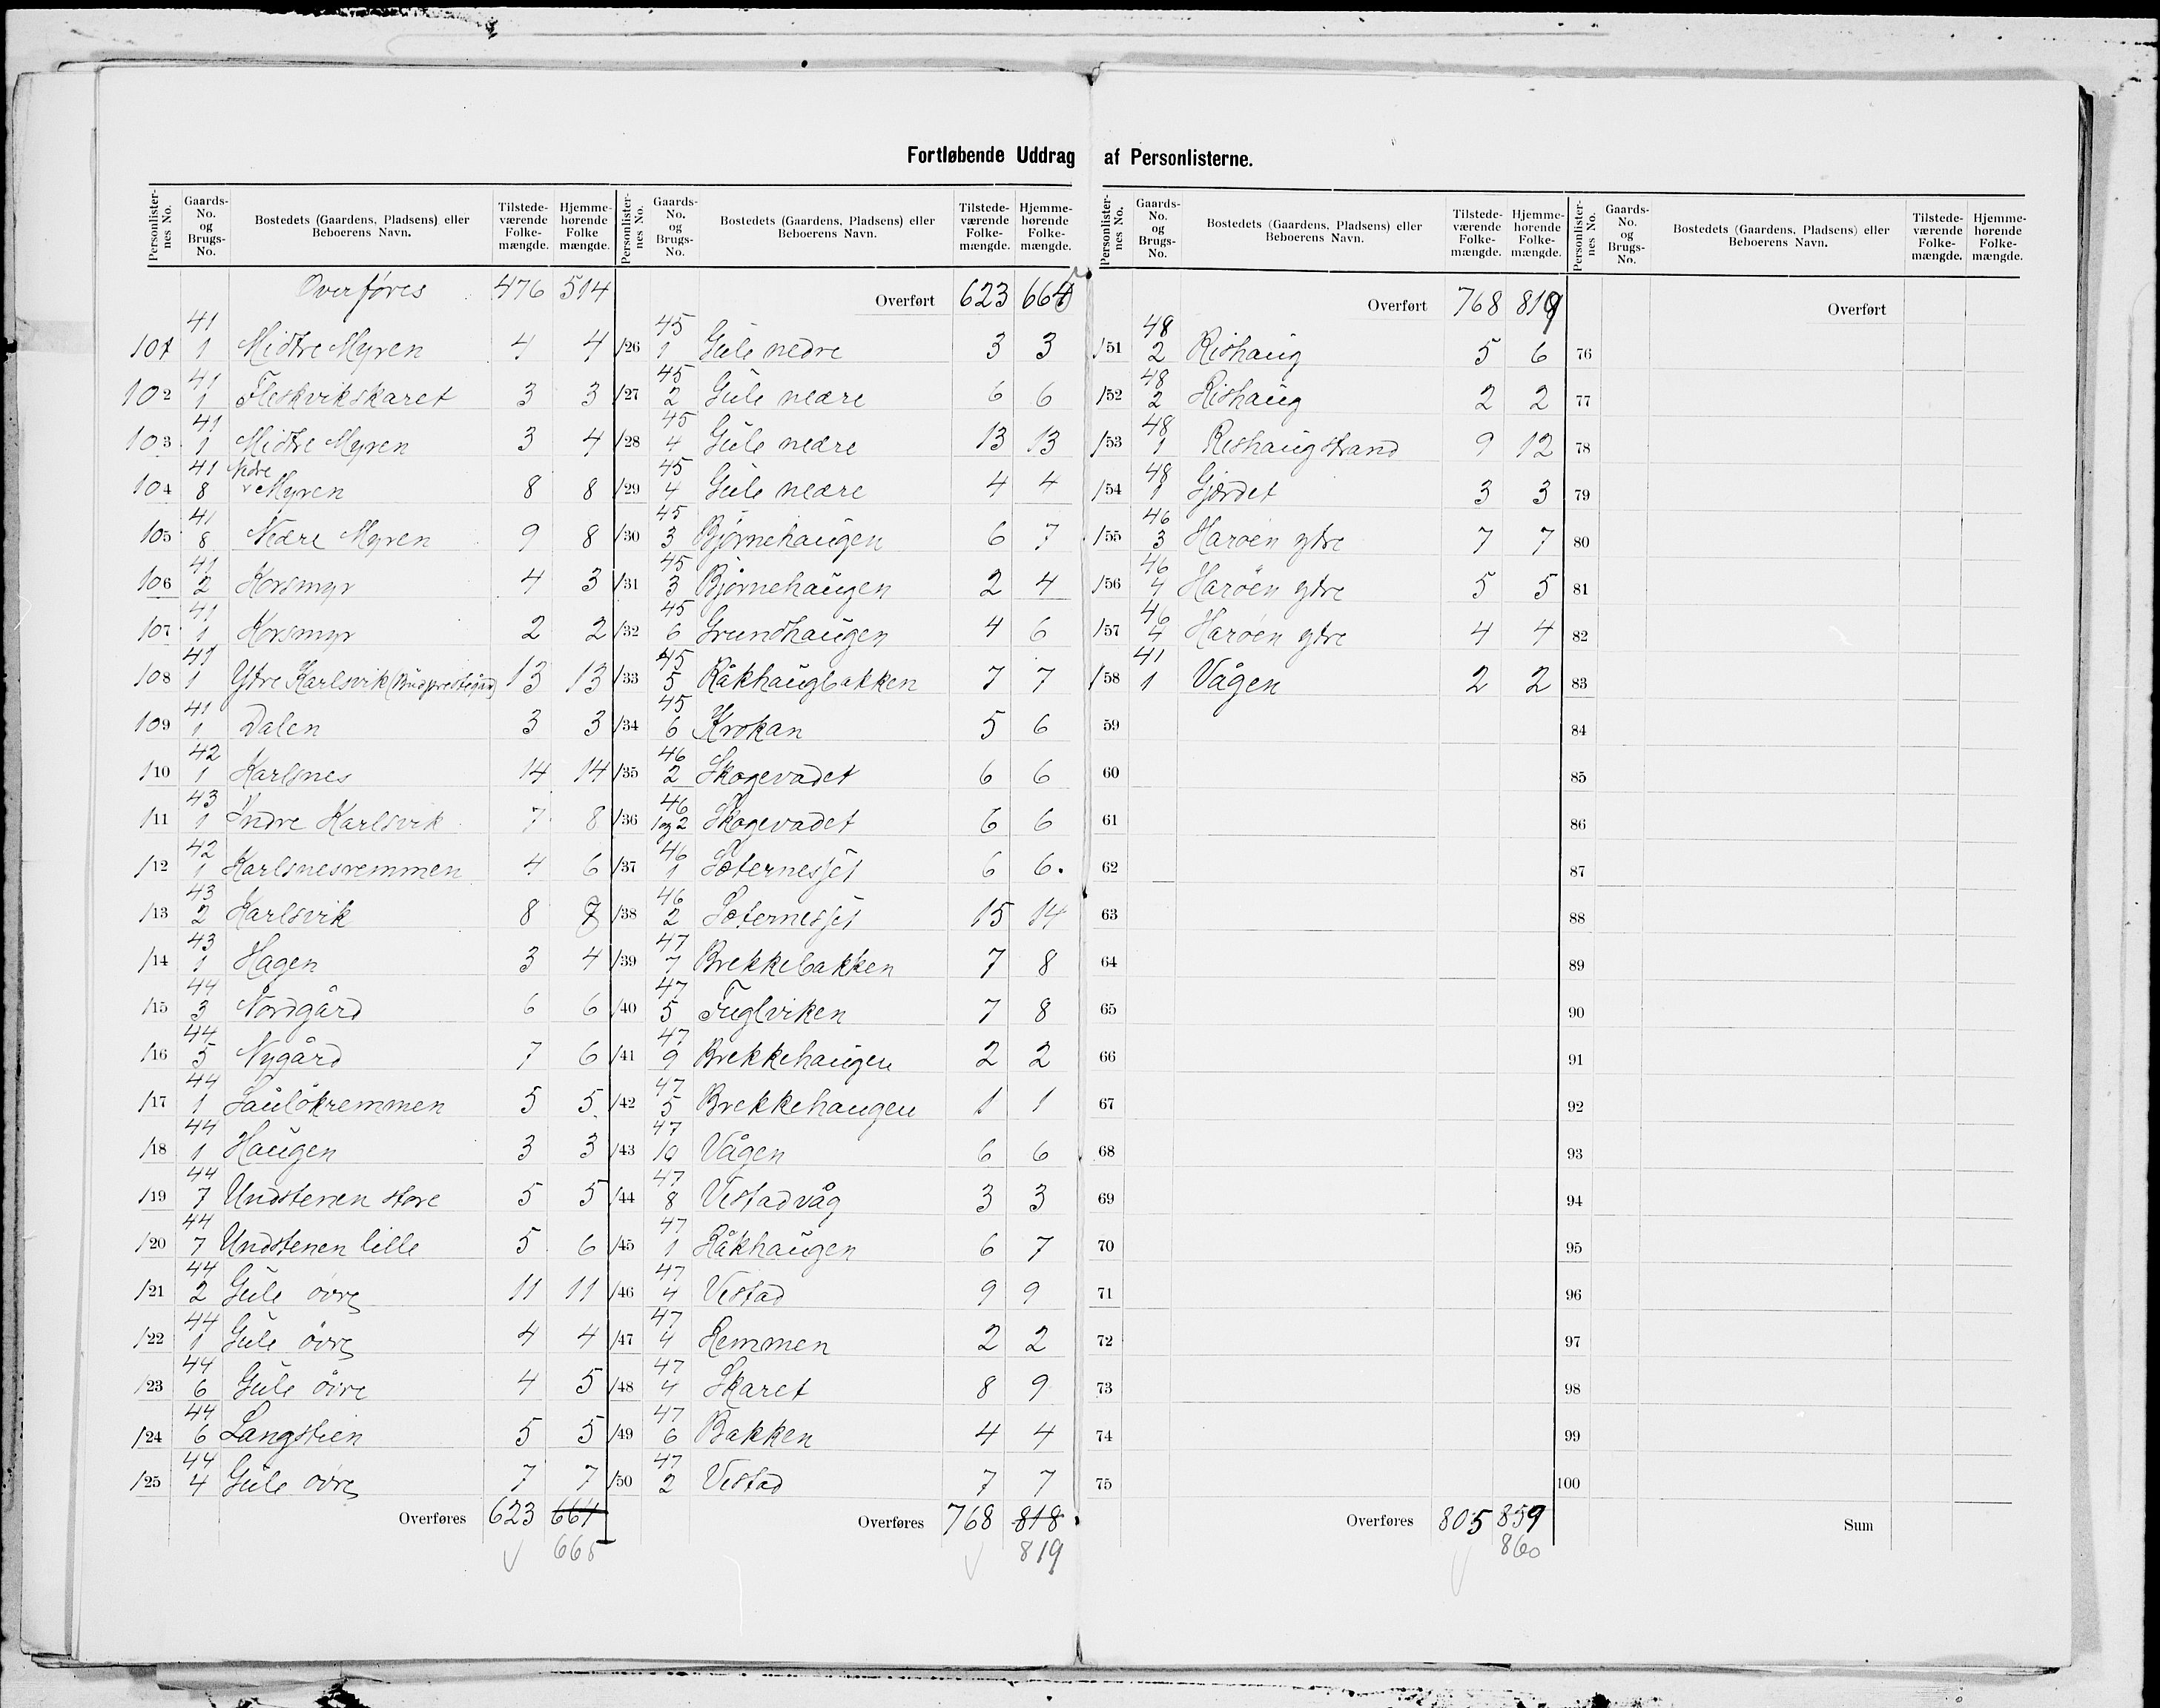 Fortløbende Uddrag af Personlisterne.
Personlisternes No. Gaards-No. og Brugs-No. Bostedets (Gaardens, Pladsens) eller Beboerens Navn. Tilstedeværende Folkemængde. Hjemmehørende Folkemængde.
Overføres 476 514
101 41 1 Midtre Myren 4 4
102 41 1 Fleskvikskaret 3 3
103 41 1 Midtre Myren 3 4
104 41 8 Nedre Myren 8 8
105 41 8 Nedre Myren 9 8
106 41 2 Korsmyr 4 3
107 41 1 Korsmyr 2 2
108 41 1 Ytre Karlsvik 13 13
109 41 1 Dalen 3 3
110 42 1 Karlsnes 14 14
111 43 1 Indre Karlsvik 7 8
112 42 1 Karlsnesremmen 4 6
113 43 2 Karlsvik 8
114 43 1 Hagen 3 4
115 44 3 Nordgård 6 6
116 44 5 Nygård 7 6
117 44 1 5 5
118 44 1 Haugen 3 3
119 44 7 Undstenen store 5 5
120 44 7 Undstenen lille 5 6
121 44 2 Gule øvre 11 11
122 44 1 Gule övre 4 4
123 44 6 Gule övre 4 5
124 44 6 Langstien 5 5
125 44 4 Gule øvre 7 7
Overføres 623 664
665
Personlisternes No. Gaards-No. og Brugs-No. Bostedets (Gaardens, Pladsens) eller Beboerens Navn. Tilstedeværende Folkemængde. Hjemmehørende Folkemængde.
Overført 623
/26 45 1 Gule nedre 3 3
/27 45 2 Gule nedre 6 6
/28 45 4 Gule nedre 13 13
/29 45 4 Gule nedre 4 4
/30 45 3 Bjørnehaugen 6 7
/31 45 3 Bjørnehaugen 2 4
/32 45 6 Grundhaugen 4 6
/33 45 5 Råkhaugbakken 7 7
/34 45 6 Krokan 5 6
/35 46 2 Skogevadet 6 6
/36 46 1 og 2 Skogevadet 6 6
/37 46 1 Sæterneset 6 6
/38 46 2 Sæterneset 15 14
/39 47 7 Brekkebakken 7 8
/40 47 5 Fuglviken 7 8
/41 47 9 Brekkehaugen 2 2
/42 47 5 Brekkehaugen 1 1
/43 47 10 Vågen 6 6
/44 47 8 Vestadvåg 3 3
/45 47 1 Råkhaugen 6 7
/46 47 4 Vestad 9 9
/47 47 4 Remmen 2 2
/48 47 4 Skaret 8 9
/49 47 6 Bakken 4 4
/50 47 2 Vestad 7 7
Overføres 768 818
819
Personlisternes No. Gaards-No. og Brugs-No. Bostedets (Gaardens, Pladsens) eller Beboerens Navn. Tilstedeværende Folkemængde. Hjemmehørende Folkemængde.
Overført 768 819
/51 48 2 Rishaug 5 6
/52 48 2 Rishaug 2 2
/53 48 1 Rishaugstrand 9 12
/54 48 1 Gjærdet 3 3
/55 46 3 Harøen ytre 7 7
/56 46 4 Harøen ytre 5 5
/57 46 4 Harøen ytre 4 4
/58 41 1 Vågen 2 2
59
60
61
62
63
64
65
66
67
68
69
70
71
72
73
74
75
Overføres 805 859
860
Personlisternes No. Gaards-No. og Brugs-No. Bostedets (Gaardens, Pladsens) eller Beboerens Navn. Tilstedeværende Folkemængde. Hjemmehørende Folkemængde.
Overført
76
77
78
79
80
81
82
83
84
85
86
87
88
89
90
91
92
93
94
95
96
97
98
99
100
Sum